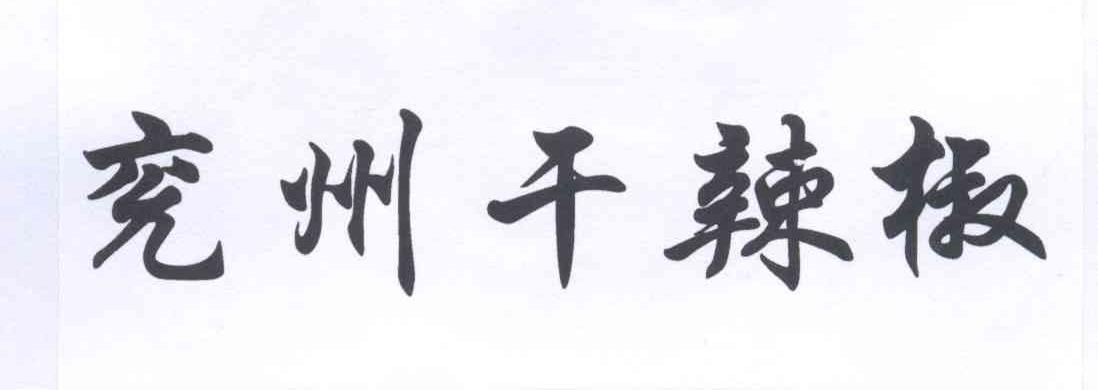 兖州干辣椒